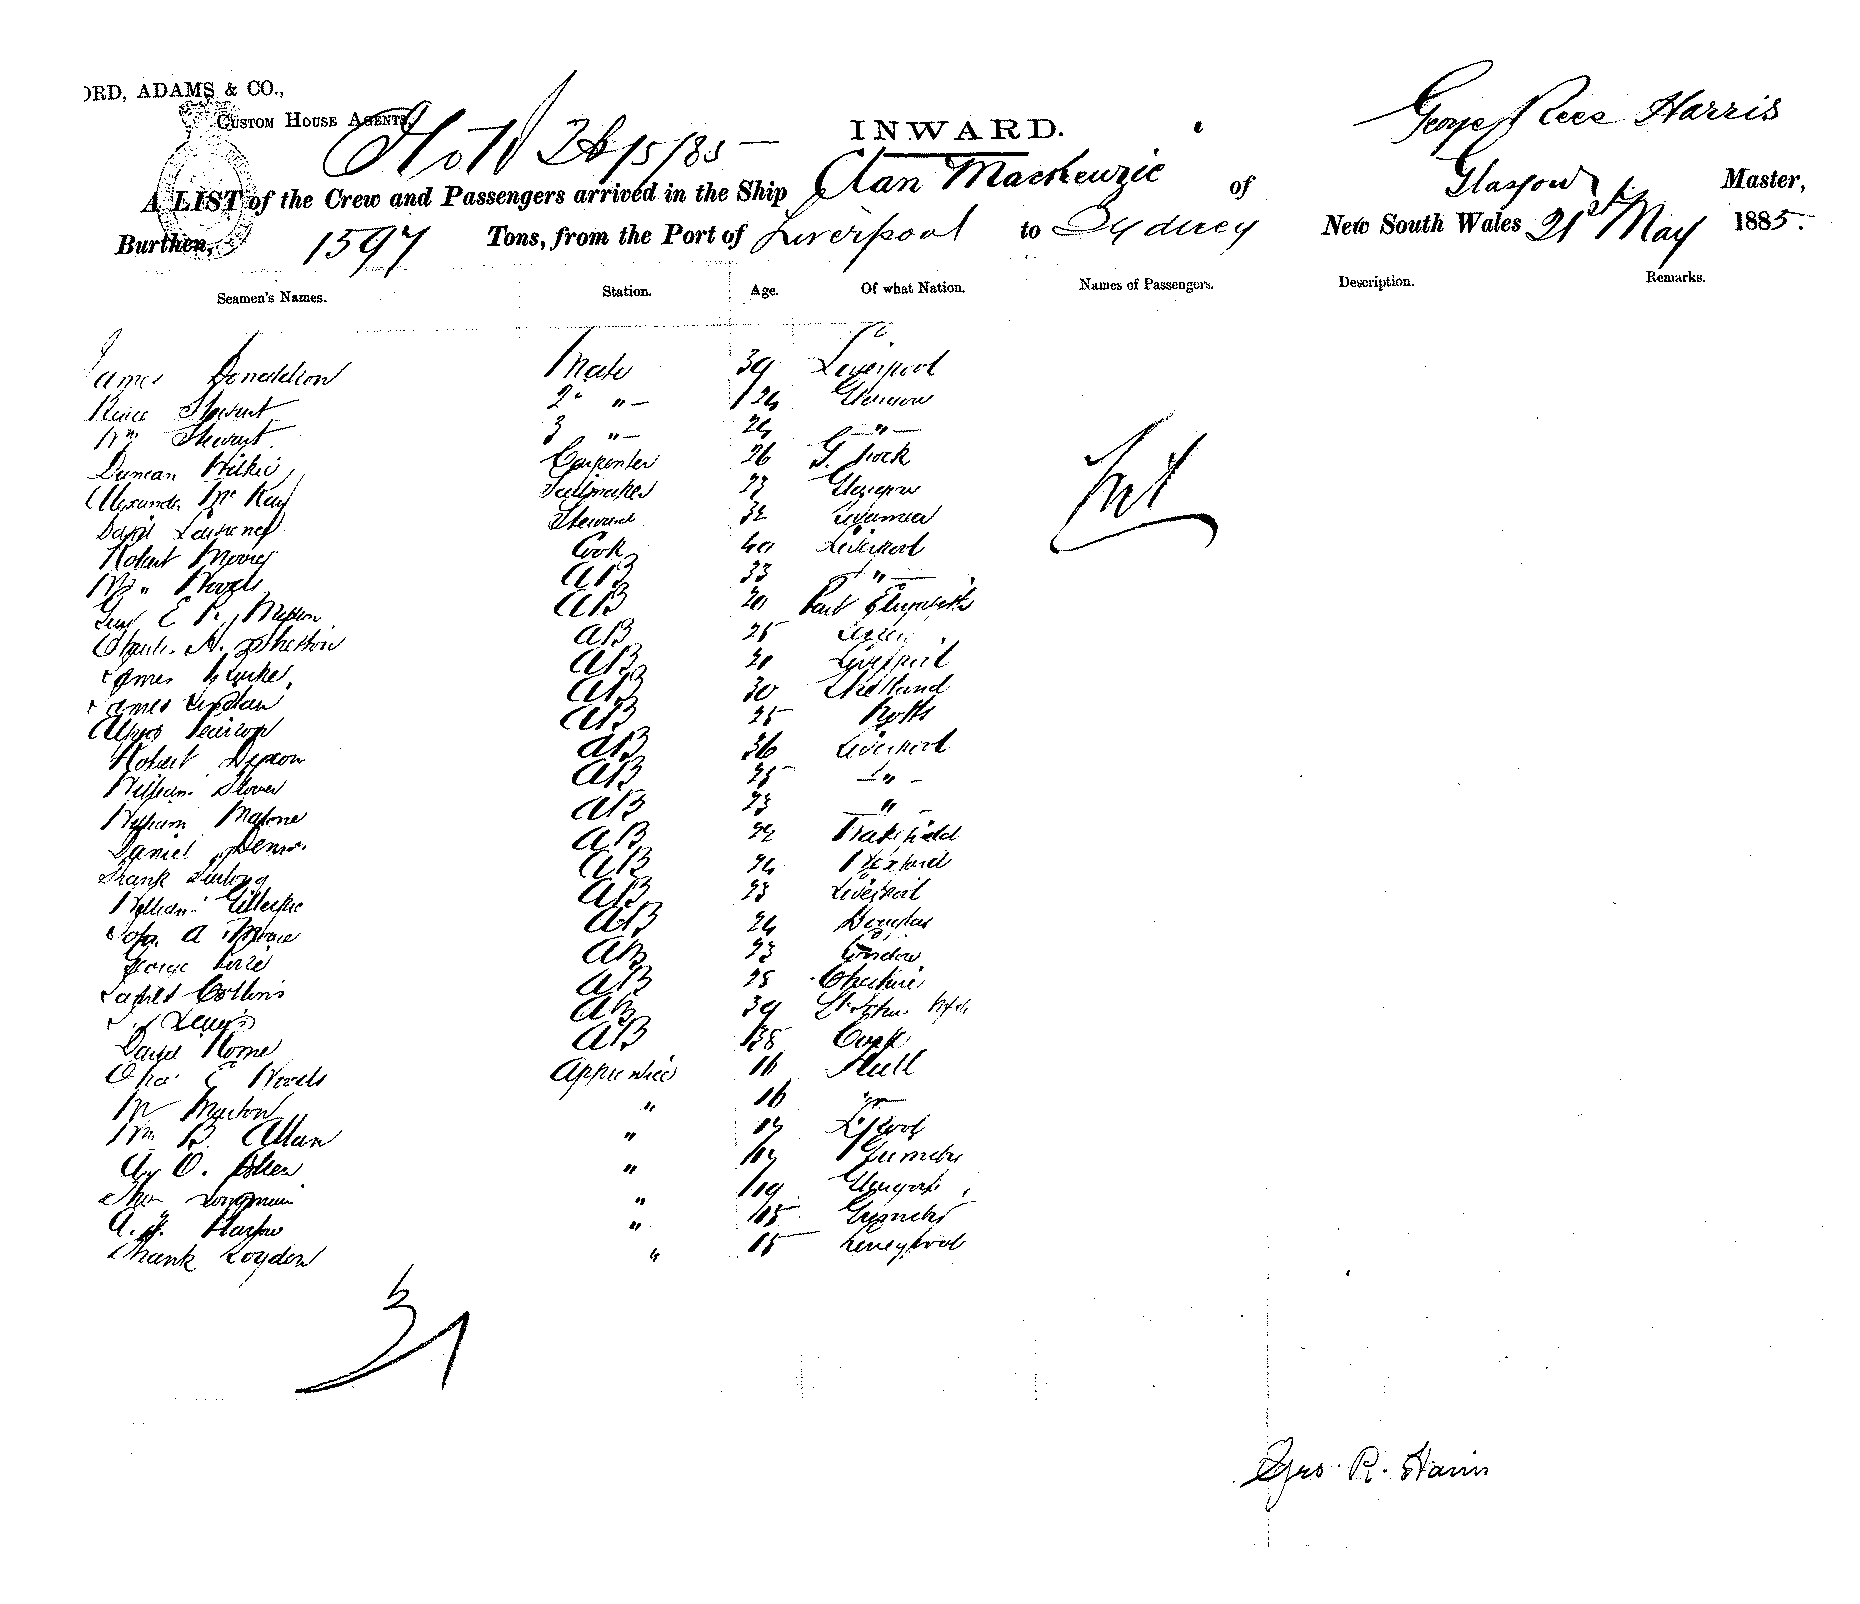 ORD, ADAMS & CO.,
CUSTOM HOUSE AGENTS,
26/5/85
INWARD.
George Rees Harris
A LIST of the Crew and Passengers arrived in the Ship Clan Mackenzie of Glasgow Master,
Burthen, 1597 Tons, from the Port of Liverpool to Sydney New South Wales 21st May 1885.
Seamen's Names. Station. Age. Of what Nation. Names of Passengers. Description. Remarks.
James Donaldson Mate 39 Liverpool
Stewart 2 " 24 Glasgow
Wm Stewart 3 " 24 "
Duncan Wilkie Carpenter 26 G. nock
Alexander Mc Kay Sailmaker 23 Glasgow
David Lawrence Steward 32
Robert Moore Cook 40 Liverpool
Wm Woods AB 33 "
Geo E R. AB 20 Port Elizabeth
Charles A. Shelton AB 25
James AB 20 Liverpool
James AB 30 Shetland
AB 25 Notts
Robert Dixon AB 36 Liverpool
William Glover AB 25 "
William Malone AB 23 "
Daniel AB 22 Wakefield
Frank Furlong AB 24 Wexford
William Gillespie AB 23 Liverpool
John A Moore AB 24 Douglas
George AB 23 London
James Collins AB 28 Cheshire
J. Lewis AB 39 St John N.B.
David Horne AB 38 Cork
Chas E Woods Apprentice 16 Hull
Wm Marton " 16 "
Wm B. Allan " 17 L'pool
O. Allen " 17
Tho Longmuir " 19 Glasgow
A. H. " 15
Frank Logden " 15 Liverpool
31
Geo. R. Harris